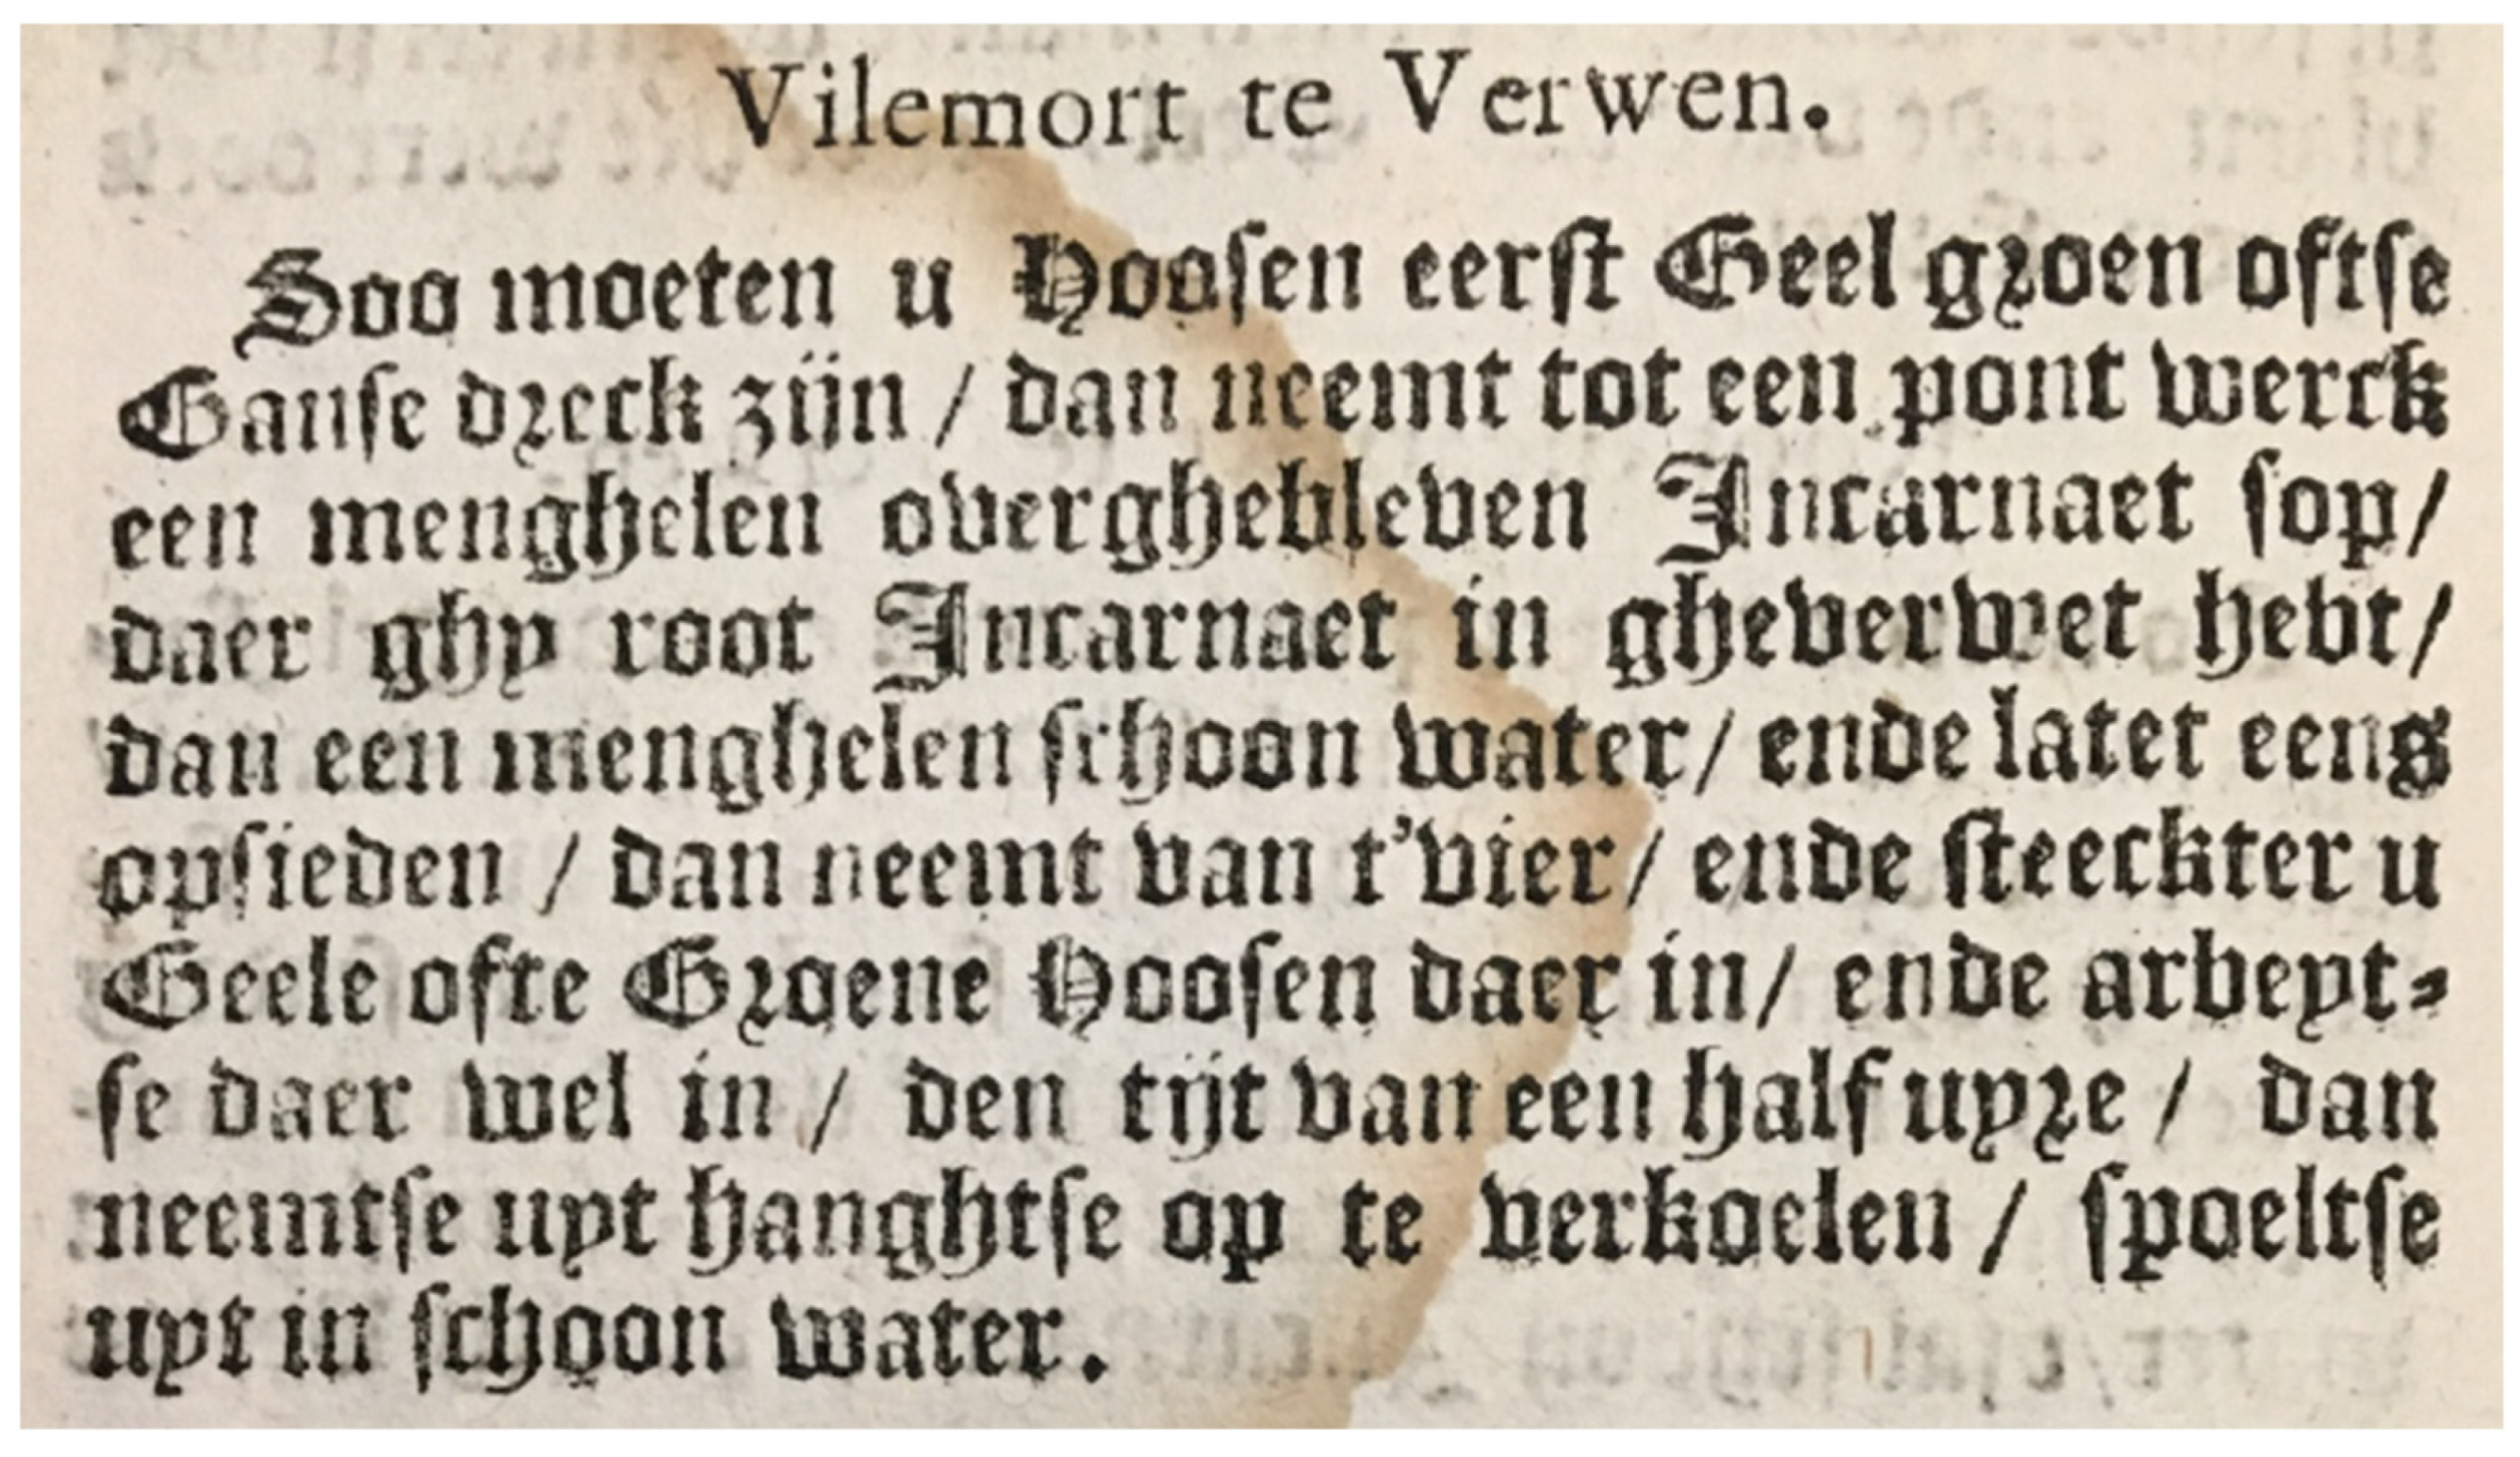 Vilemort te Verwen.
Soo moeten u Hoosen eerst Geel groen oftse
Ganse dreck zijn / dan neemt tot een pont werck
een menghelen overghebleven Incarnaet sop/
daer ghy root Incarnaet in gheverwet hebt/
dan een menghelen schoon water/ ende latet eens
opsieden / dan neemt van t'vier/ ende steeckter u
Geele ofte Groene Hoosen daer in/ ende arbeyt-
se daer wel in / den tijt van een half uyre / dan
neemtse uyt hanghtse op te verkoelen / spoeltse
uyt in schoon water.